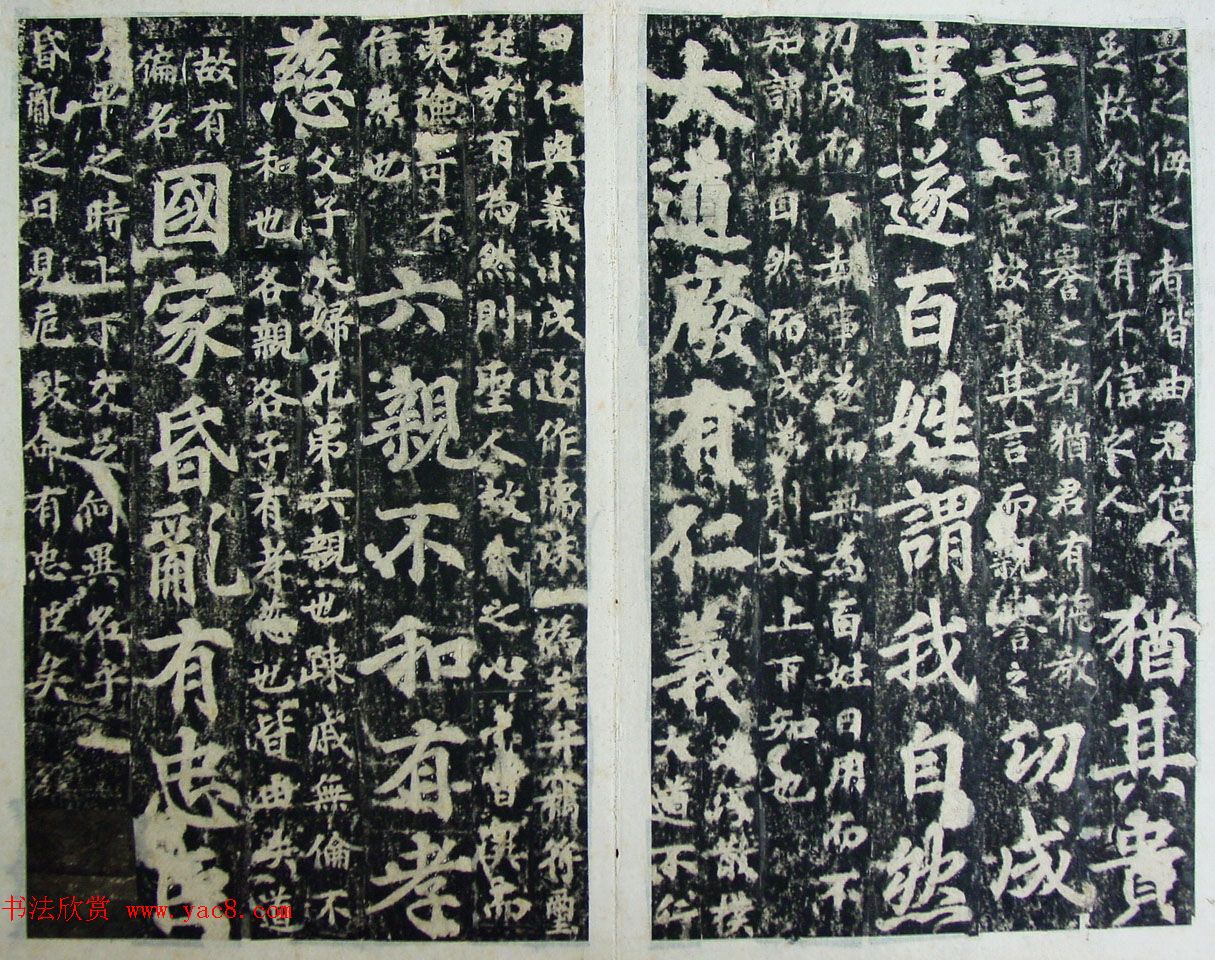 畏之侮之者皆由君信不
足故令下有不信之人
猶其貴
言
親之譽之者猶君有德教
之言故貴其言而親譽之
功成
事遂百姓謂我自然
功成而不執事遂而無為百姓日用而不
知謂我自然而成者則太上下知也
大道廢有仁義
澆淳散樸
大道不行
曰仁與義小成遂作濡沫矣
於有為然則聖人救之心
夷險可不
信也
六親不和有孝
慈
父子夫婦兄弟六親也疎戚無倫不
和也各親各子有孝慈也皆由失道
故有
偏名
國家昏亂有忠臣
太平之時上下交足何異名乎
昏亂之日見危致命有忠臣矣
书法欣赏 www.yac8.com